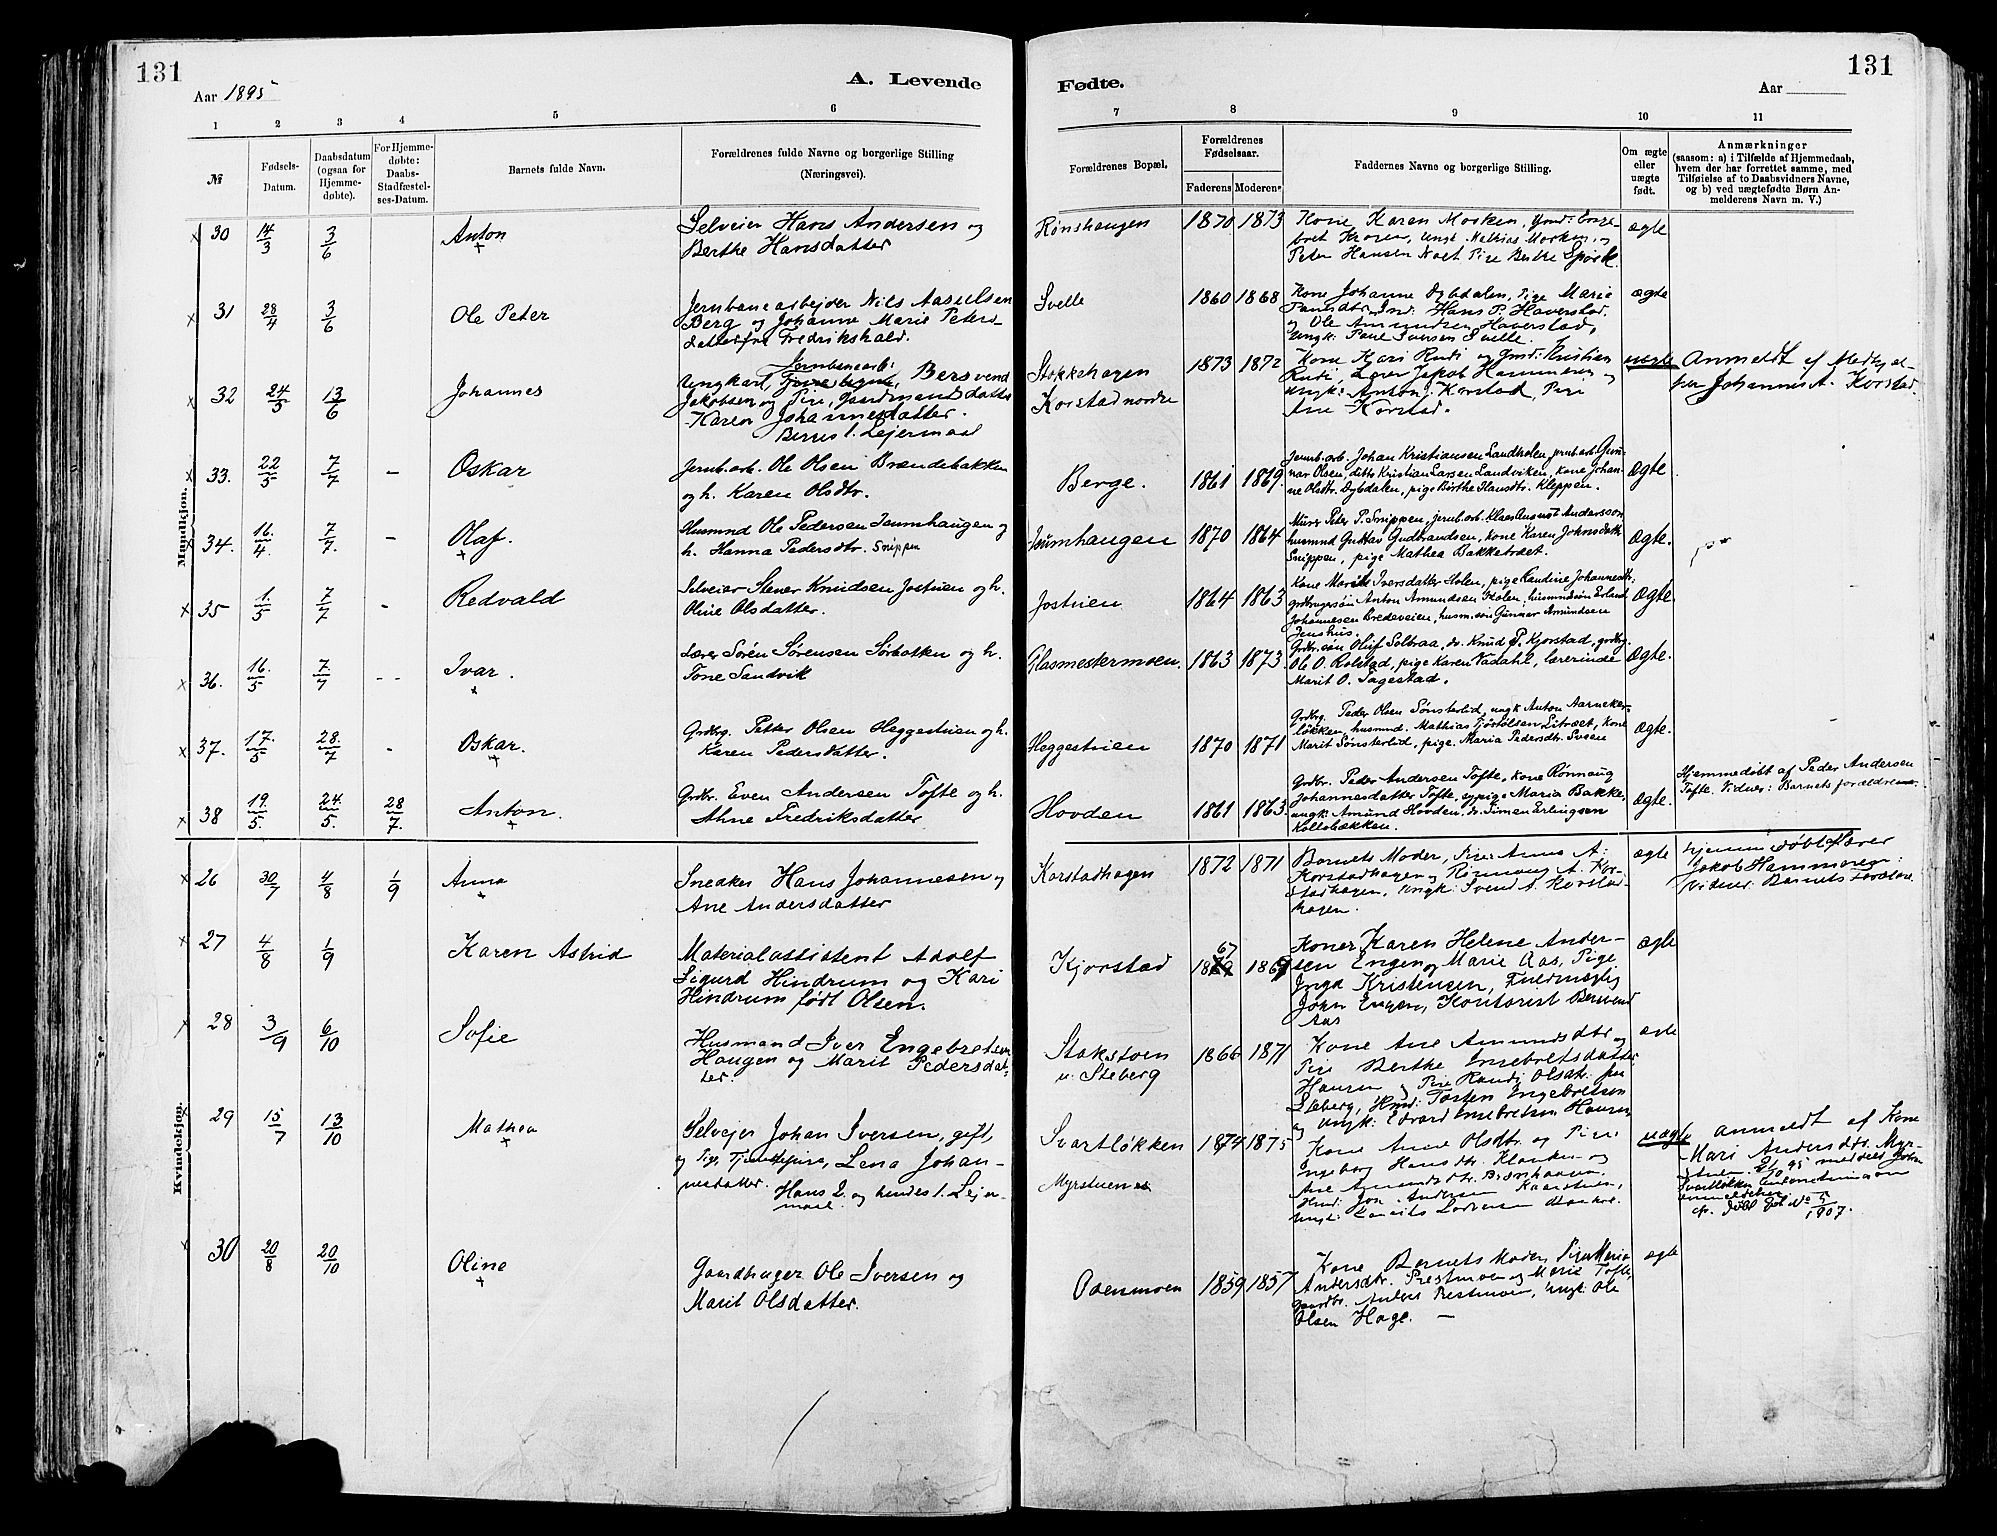 131
Aar 1895
A. Levende
1 2 3 4 5 6
№
Fødsels-
Datum.
Daabsdatum
(ogsaa for
Hjemme-
døbte).
For Hjemme-
døbte:
Daabs-
Stadfæstel-
ses-Datum.
Barnets fulde Navn.
Forældrenes fulde Navne og borgerlige Stilling
(Næringsvei).
Mandkjøn.
30 14/3 3/6 Anton
Selveier Hans Andersen og
Berthe Hansdatter
31 28/4 3/6 Ole Peter
Jernbanearbejder Nils Aasulsen
Berg og Johanne Marie Peters-
datter fra Fredrikshald.
32 24/5 13/6 Johannes
Jernbanearb:
Ungkarl, Bersvend
Jakobsen og Pige, Gaardmandsdatter
Karen Johannesdatter.
Begges 1. Lejermaal
33. 22/5 7/7 - Oskar
Jernb.arb. Ole Olsen Brændebakken
og h. Karen Olsdtr.
34. 16./4. 7/7. - Olaf
Husmnd Ole Pedersen Isumhaugen og
h. Hanna Pedersdtr. Snippen
35 1./5 7/7 - Redvald
Selveier Stener Knudsen Jostuen og h.
Oline Olsdatter.
36. 16./5 7./7 - - Ivar.
Lærer Sören Sørensen Sørbakken og h.
Tone Sandvik
37. 17./5 28./7 - Oskar.
Grdbrg. Petter Olsen Heggestuen og h.
Karen Pedersdatter.
38 19./5. 24./5. 28/7. Anton.
Grdbr. Even Andersen Tofte og h.
Ahne Fredriksdatter
Kvindekjøn.
26 30/7 4/8 1/9 Anna
Snedker Hans Johannesen og
Ane Andersdatter
27 4/8 1/9 Karen Astrid
Materialassistent Adolf
Sigurd Hindrum og Kari
Hindrum født Olsen.
28 3/9 6/10 Sofie
Husmand Iver Engebretsen
Haugen og Marit Pedersdat-
ter.
29 15/7 13/10 Mathea
Selvejer Johan Iversen, gift,
og Pige, Tjenestepige, Lena Johan-
nesdatter.
Hans 2. og hendes 1. Lejer-
maal.
30 20/8 20/10 Oline
Gaardbruger Ole Iversen og
Marit Olsdatter.
131
Fødte.
Aar
7 8 9 10 11
Forældrenes Bopæl.
Forældrenes
Fødselsaar.
Faderens Moderens
Faddernes Navne og borgerlige Stilling.
Om ægte
eller
uægte
født.
Anmærkninger
(saasom: a) i Tilfælde af Hjemmedaab,
hvem der har forrettet samme, med
Tilføielse af to Daabsvidners Navne,
og b) ved uægtefødte Børn An-
melderens Navn m. V.)
Rønshaugen 1870 1873
Kone Karen Morken, Gmd: Enge-
bret Krogen, Ungk Mathias Morken, og
Peter Hansen Pige Berthe
ægte
Svelle 1860 1868
Kone Johanne Dybdalen, Pige Marie
Hans P. Haverstad
og Ole Amundsen Haverstad,
Ungk: Paul Iversen Svelle.
ægte
Stokkehagen 1873 1872
Korstad nordre
Kone Kari Rudi og Gmd: Kristian
Rudi, Lærer Jakob Hammeren og
Ungk: Anton J. Korstad, Pige
Ane Korstad.
uægte
Anmeldt af
Johannes A. Korstad.
Berge. 1861 1869.
Jernb.arb. Johan Kristiansen Landholen, jernb.arb. Gun-
nar Olsen, ditto Kristian Larsen Landviken, kone Johan-
ne Olsdtr. Dybdalen, pige Birthe Hansdtr. Kleppen.
Ægte
Isumhaugen 1870 1864
Murer Peter P. Snippen, jernb.arb. Klaes August Andersson,
husmnd Gustav Gudbrandsen, kone Karen Johnsdatter
Snippen, pige Mathea Bakketræet.
Ægte.
Jostuen 1864 1863
Kone Marith Iversdatter Holen, pige Randine Johannesdtr.
grdbrugersøn Anton Amundsen Holen, husmndssøn Erland
Johannesen Bredeveien, husm.søn Gunnar Amundsen
Jenshus.
Ægte.
Glasmestermoen. 1863 1873.
Grdbr.søn Oluf Solbraa, do. Knud P. Kjorstad, grdbrg.
Ole O. Rolstad, pige Karen Vadahl, lærerinde
Marit O. Sagestad.
Ægte.
Heggestuen 1870 1871
Grdbrg. Peder Olsen Sønsterlid, ungk Anton Aarneker-
løkken, husmnd. Mathias Kjöstolsen Litræet, kone
Marit Sønsterlid, pige Maria Pedersdtr. Sveen
Ægte.
Hovden 1861 1863.
Grdbr. Peder Andersen Tofte, kone Rønnaug
Johannesdatter Tofte, pige Maria Bakke,
ungk: Amund Hovden, do. Simen Erlingsen
Kollobækken.
Ægte.
Hjemmedøbt af Peder Andersen
Tofte. Vidner: Barnets forældre.
Korstadhagen 1872 1871
Barnets Moder, Pige: Anne A.
Korstadhagen og Rønnaug A. Kor-
stadhagen, Ungk: Svend A. Korstad-
hagen.
ægte
Hjemmedøbt af Lærer
Jakob Hammeren:
Vidner: Barnets Forældre.
Kjorstad 67 1869
Koner Karen Helene Ander-
sen Engen og Marie Aas, Pige
Inga Kristensen, Fuldmægtig
John Engen, Kontorist Bersvend
Aas
ægte
Stokstoen 1866 1871
u. Steberg
Kone Ane Amundsdtr og
Pige Berthe Engebretsdatter
Haugen og Pige Randi Olsdtr. fra
Steberg, Hmd: Tosten Ingebretsen
og Ungk: Edvard Engebretsen Haugen
ægte
Svartløkken 1874 1875
Myrstuen
Kone Ane Olsdtr. og Pige:
Ingeborg Hansdtr. og
Ane
Hmd: Jon Andersen
Ungk:
uægte
Anmeldt af Kone
Mari Andersdtr. Myr-
stuen.
Svartløkken
1907.
Odenmoen 1859 1857
Kone Barnets Moder, Pige Maria
Andersdtr. Prestmoen og Marie Tofte,
Gaardbr. Anders Prestmoen, Ungk: Ole
Olsen Hage. —
ægte